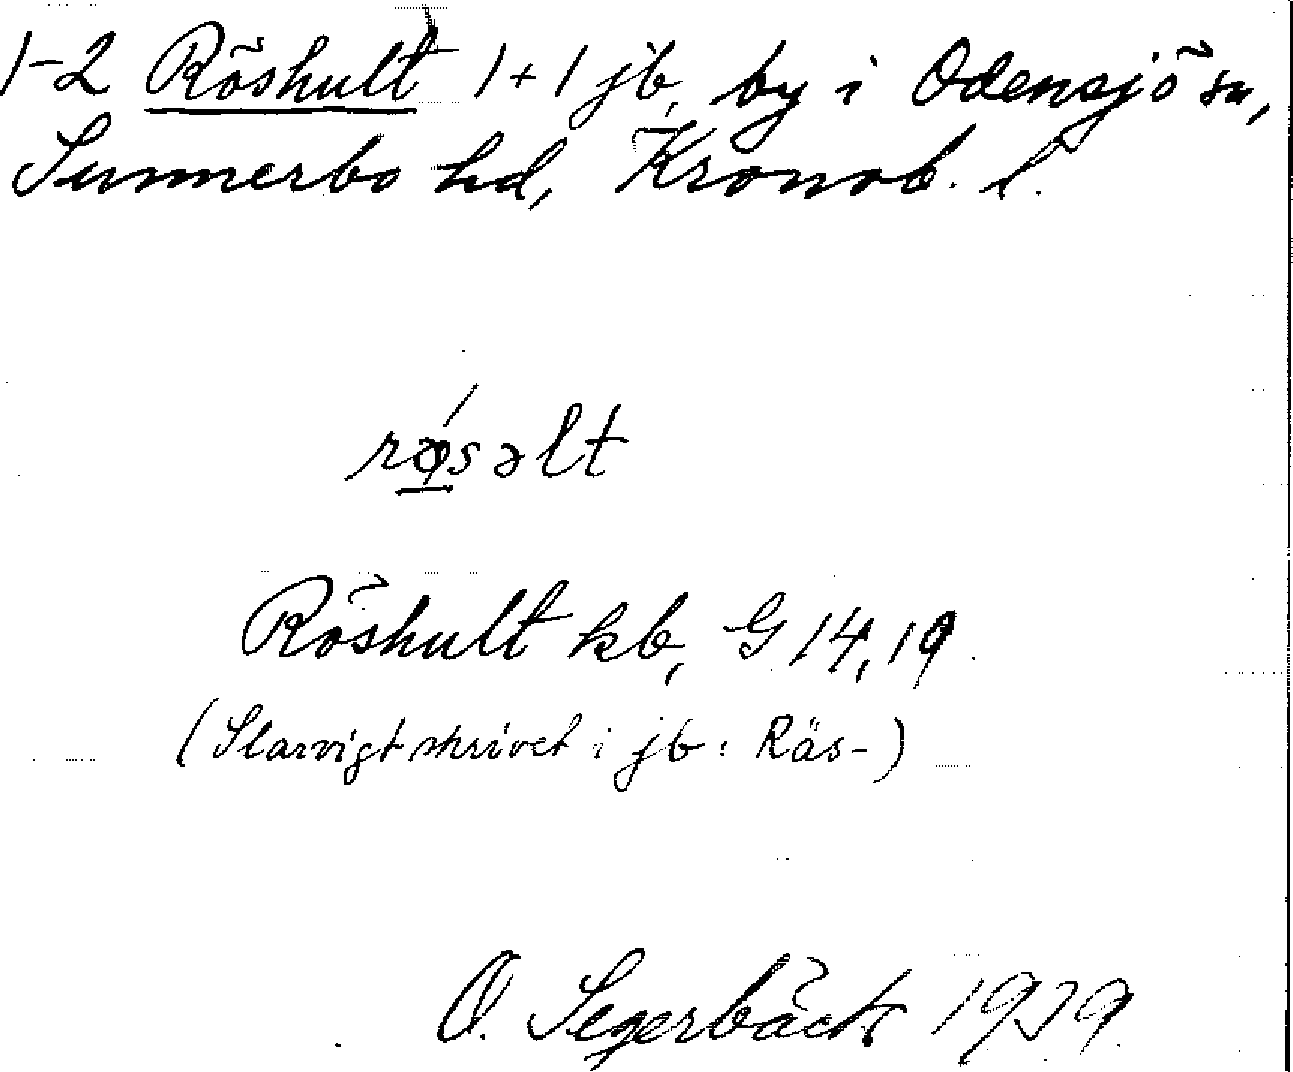 1-2 Röshult 1+1 jb, by i Odensjö sn,
Sunnerbo hd, Kronob. l.
rǿ̲səlt
Röshult kb, G 14, 19.
(Slarvigt skrivet i jb: Räs-)
O. Segerbäck 1939.